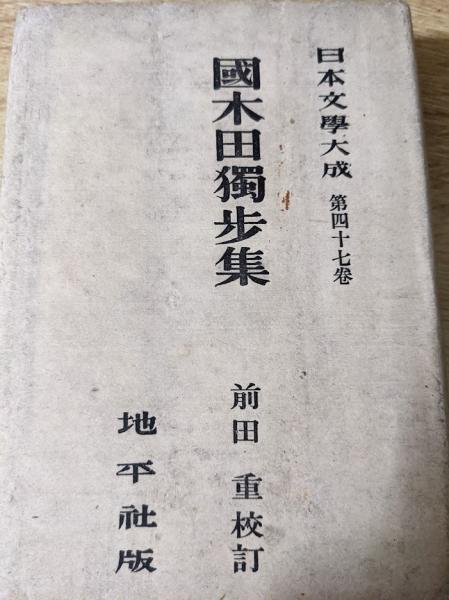 日本文學大成 第四十七卷
國木田獨步集
前田 重校訂
地平社版